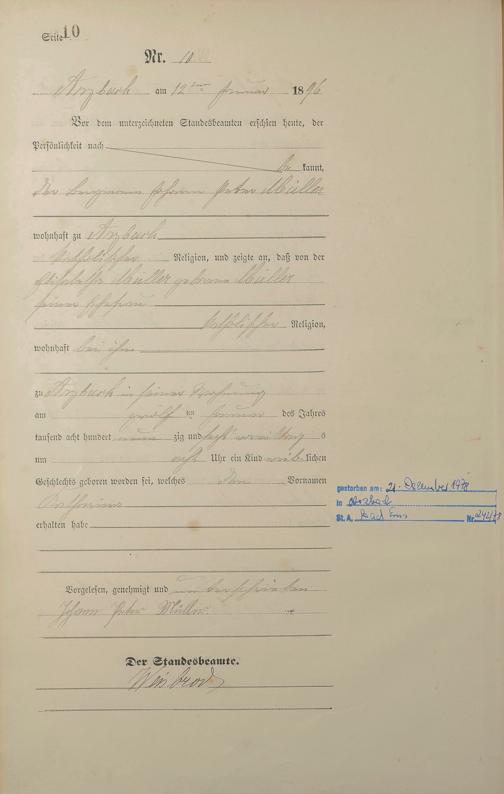 Seite 10
Nr. 10
Arzbach am 12ten Januar 1896
Vor dem unterzeichneten Standesbeamten erschien heute, der
Persönlichkeit nach
be kannt,
der Bergmann Johann Peter Müller
wohnhaft zu Arzbach
katholischer Religion, und zeigte an, daß von der
Elisabetha Müller geborene Müller
seiner Ehefrau
katholischer Religion,
wohnhaft bei ihm
zu Arzbach in seiner Wohnung
am zwölf ten Januar des Jahres
tausend acht hundert neun zig und sechs Vormittags
um acht Uhr ein Kind weib lichen
Geschlechts geboren worden sei, welches den Vornamen
Katharina
erhalten habe
Vorgelesen, genehmigt und unterschrieben
Johann Peter Müller
Der Standesbeamte.
Weisbrod
gestorben am: 21. Dezember 1978
in Arzbach
St. A. Bad Ems Nr. 242/78